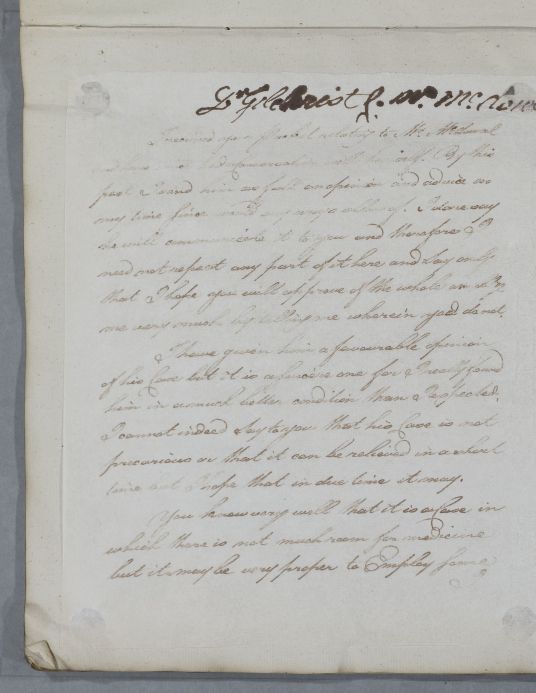 Dr Gilchrist f. Mr. McDowa
I received your relating to Mr. McDowal
and have had himself. By this
post I send him as full an opinion and advice as
my time since would any ways allow of. I dare say
he will communicate it to you and therefore I
need not repeat any part of it here and Say only
that I hope you will approve of the whole or
me very much by telling me wherein you do not.
I have given him a favourable opinion
of his Case but it is a sincere one for I really found
him in a much better condition than I expected.
I cannot indeed Say to you that his Case is not
precarious or that it can be relieved in a short
time but I hope that in due time it may.
You know very well that it is a Case in
which there is not much room for medicine
but it may be very proper to Employ some